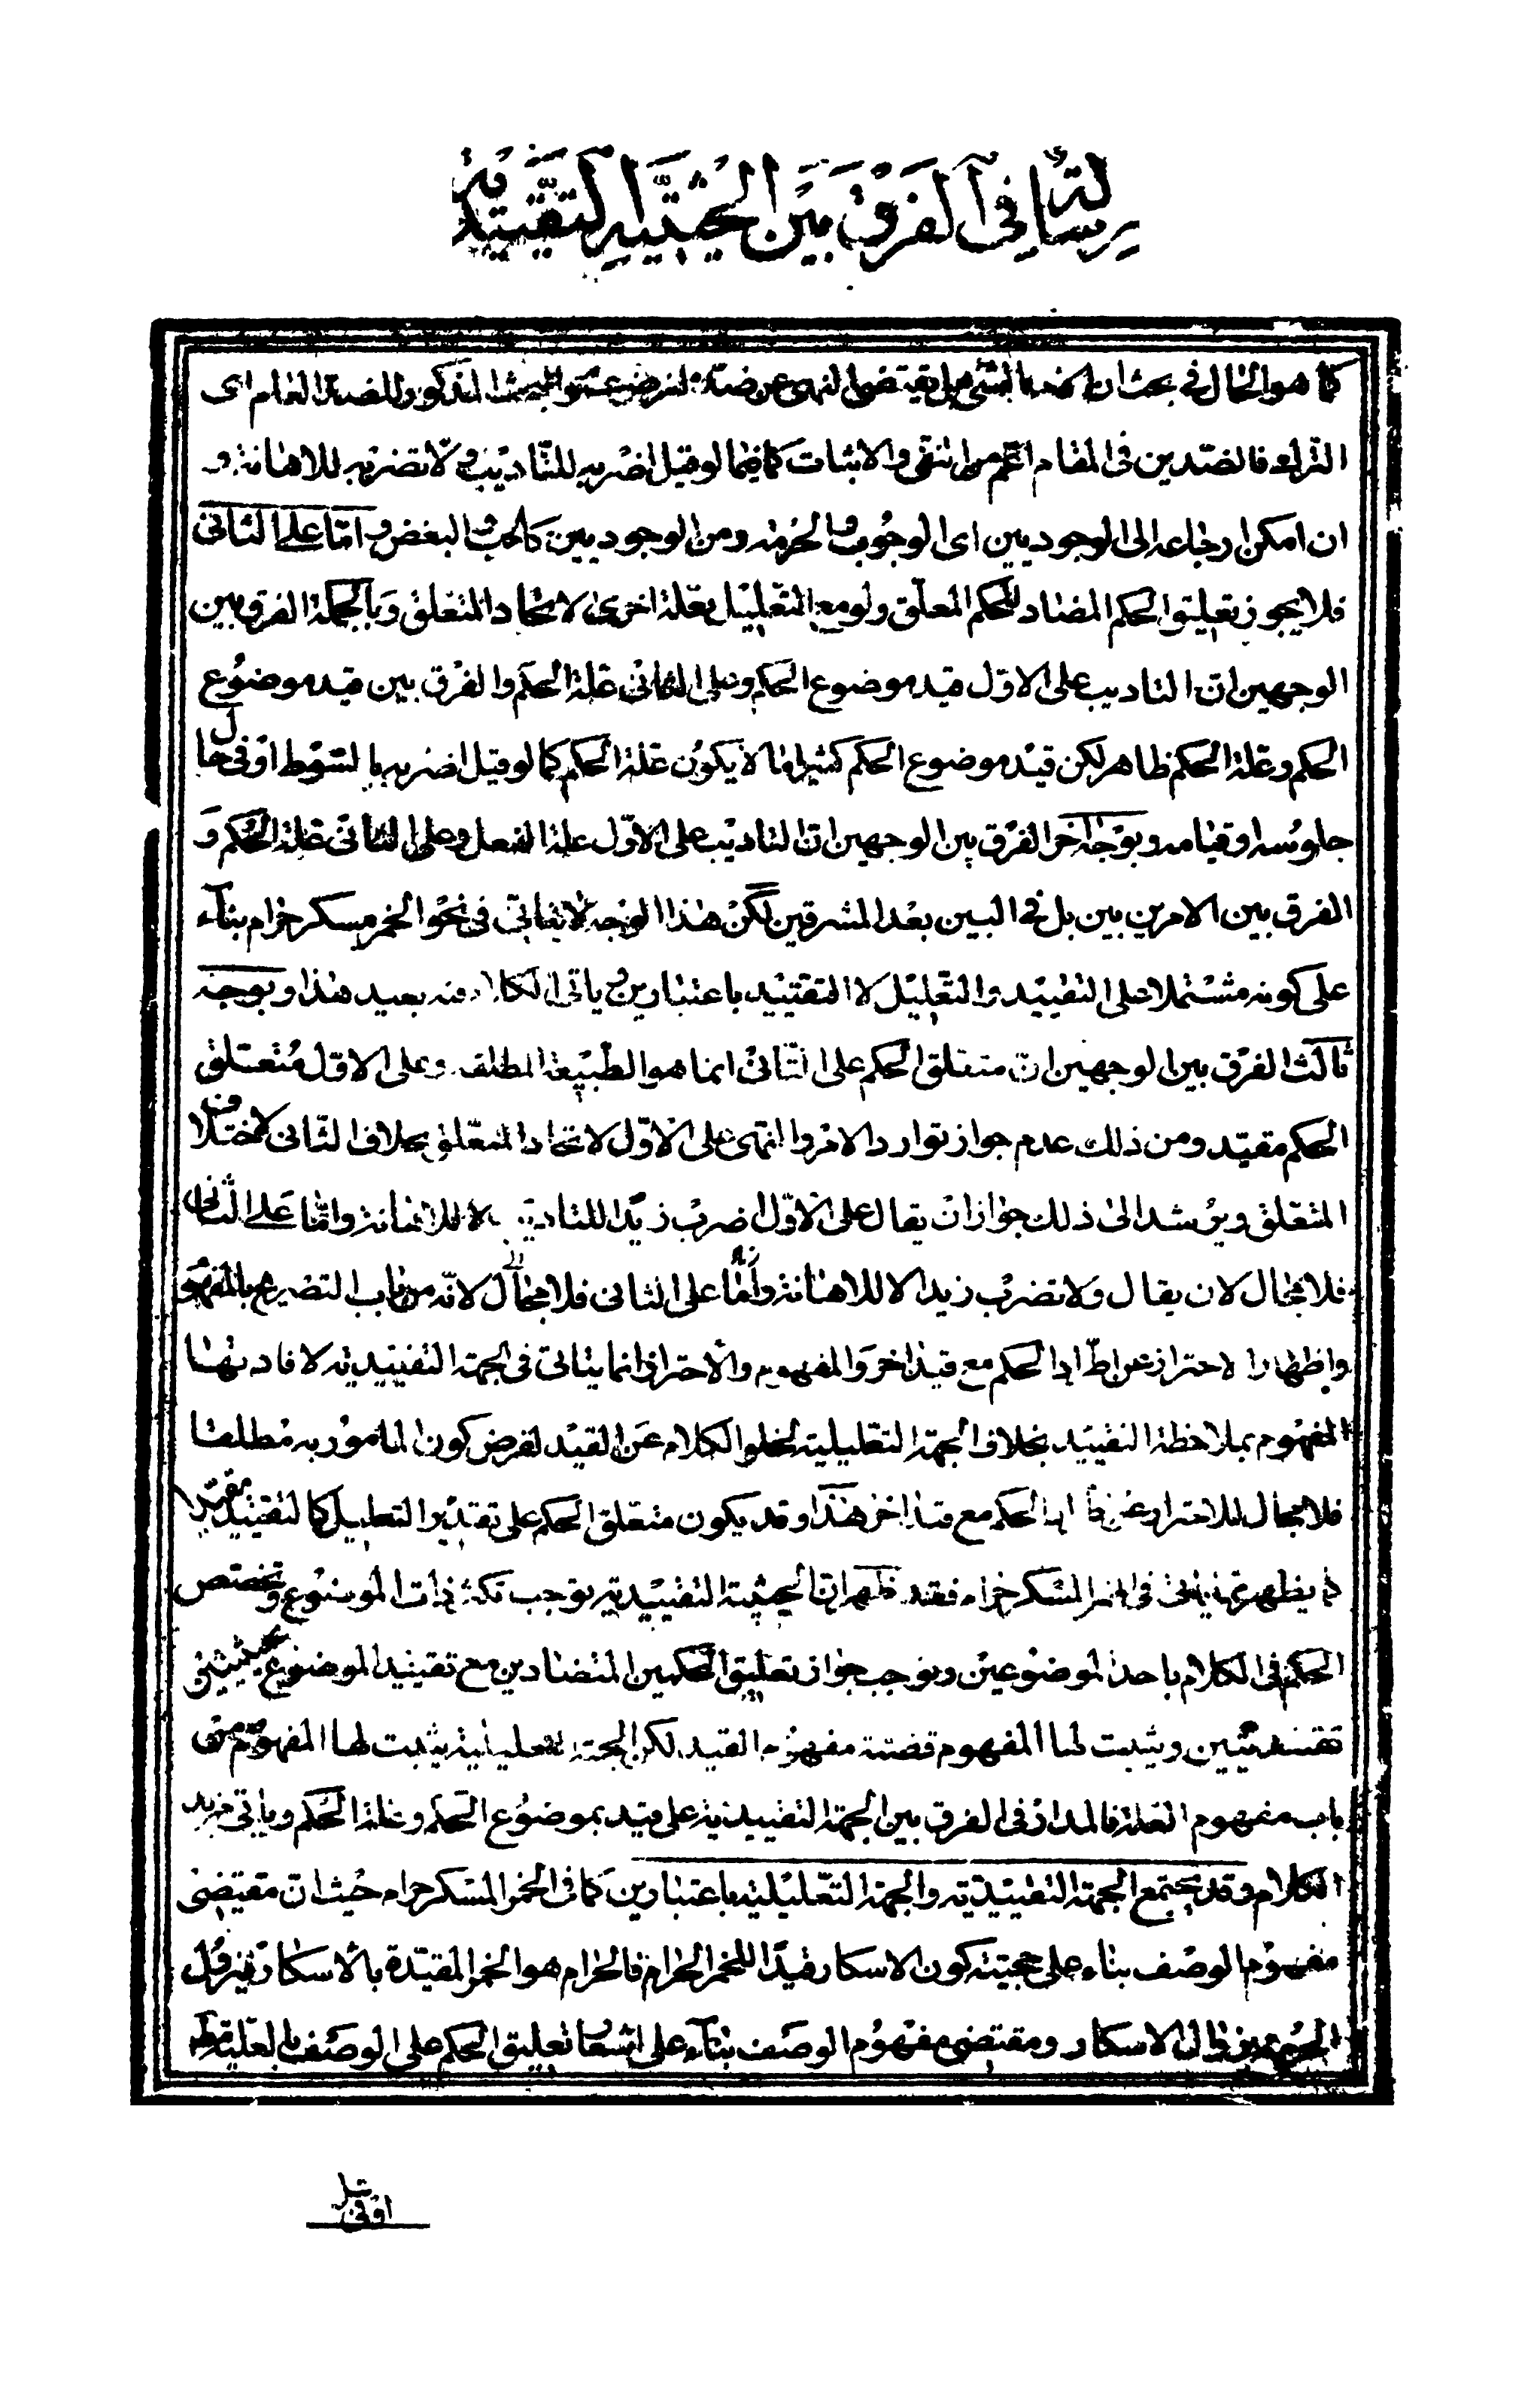 رسالة في الفرق بين الحيثية التقييدية
كما هو الحال في بحث ان الامر بالشئ هل يقتضى النهى عن ضده لفرض عموم البحث المذكور للضد العام اى
الترك فالضدين في المقام اعم من النفى والاثبات كما فيما لو قيل اضربه للتاديب ولا تضربه للاهانة و
ان امكن ارجاعه الى الوجوديين اى الوجوب والحرمة ومن الوجوديين كالحب والبغض واما على الثانى
فلا يجوز تعليق الحكم المضاد للحكم المعلق ولو مع التعليل بعلة اخرى لاتحاد المتعلق وبالجملة الفرق بين
الوجهين ان التاديب على الاول قيد موضوع الحكم وعلى الثانى علة الحكم والفرق بين قيد موضوع
الحكم وعلة الحكم ظاهر لكن قيد موضوع الحكم كثيرا ما لا يكون علة الحكم كما لو قيل اضربه بالسوط او فى حال
جلوسه او قيامه وبوجه اخر الفرق بين الوجهين ان التاديب على الاول علة الفعل وعلى الثانى علة الحكم و
الفرق بين الامرين بين بل في البين بعد المشرقين لكن هذا الوجه لا يتاتى فى نحو الخمر مسكر حرام بناء
على كونه مشتملا على التقييد والتعليل لا التقييد باعتبارين وياتى الكلام فيه بعيد هذا وبوجه
ثالث الفرق بين الوجهين ان متعلق الحكم على الثانى انما هو الطبيعة المطلقة وعلى الاول متعلق
الحكم مقيد ومن ذلك عدم جواز توارد الامر والنهى على الاول لاتحاد المتعلق بخلاف الثانى لاختلاف
المتعلق ويرشد الى ذلك جواز ان يقال على الاول اضرب زيدا للتاديب لا للاهانة واما على الثانى
فلا مجال لان يقال ولا تضرب زيدا لا للاهانة واما على الثانى فلا مجال لانه من باب التصريح بالمفهوم
واظهار الاحتراز عن اطراد الحكم مع قيد اخر والمفهوم والاحتراز انما يتاتى فى الجهة التقييدية لافادتها
المفهوم بملاحظة التقييد بخلاف الجهة التعليلية لخلو الكلام عن القيد لفرض كون المامور به مطلقا
فلا مجال للاحتراز عن اطراد الحكم مع قيد اخر هذا وقد يكون متعلق الحكم على تقدير التعليل كالتقييد مقيدا
كما يظهر مما ياتى فى الخمر المسكر حرام فقد ظهر ان الحيثية التقييدية توجب تكثر ذات الموضوع وتختص
الحكم فى الكلام باحد الموضوعين وتوجب جواز تعليق الحكمين المتضادين مع تقييد الموضوع بحيثيتين
تقييديتين ويثبت لها المفهوم قضية مفهوم القيد لكن الجهة التعليلية يثبت لها المفهوم من
باب مفهوم العلة فالمدار فى الفرق بين الجهة التقييدية على قيد بموضوع الحكم وعلة الحكم وياتى مزيد
الكلام وقد يجتمع الجهة التقييدية والجهة التعليلية باعتبارين كما فى الخمر المسكر حرام حيث ان مقتضى
مفهوم الوصف بناء على حجيته كون الاسكار قيدا للخمر الحرام فالحرام هو الخمر المقيدة بالاسكار فيزول
الحرمة بزوال الاسكار ومقتضى مفهوم الوصف بناء على اشعار تعليق الحكم على الوصف بالعلية